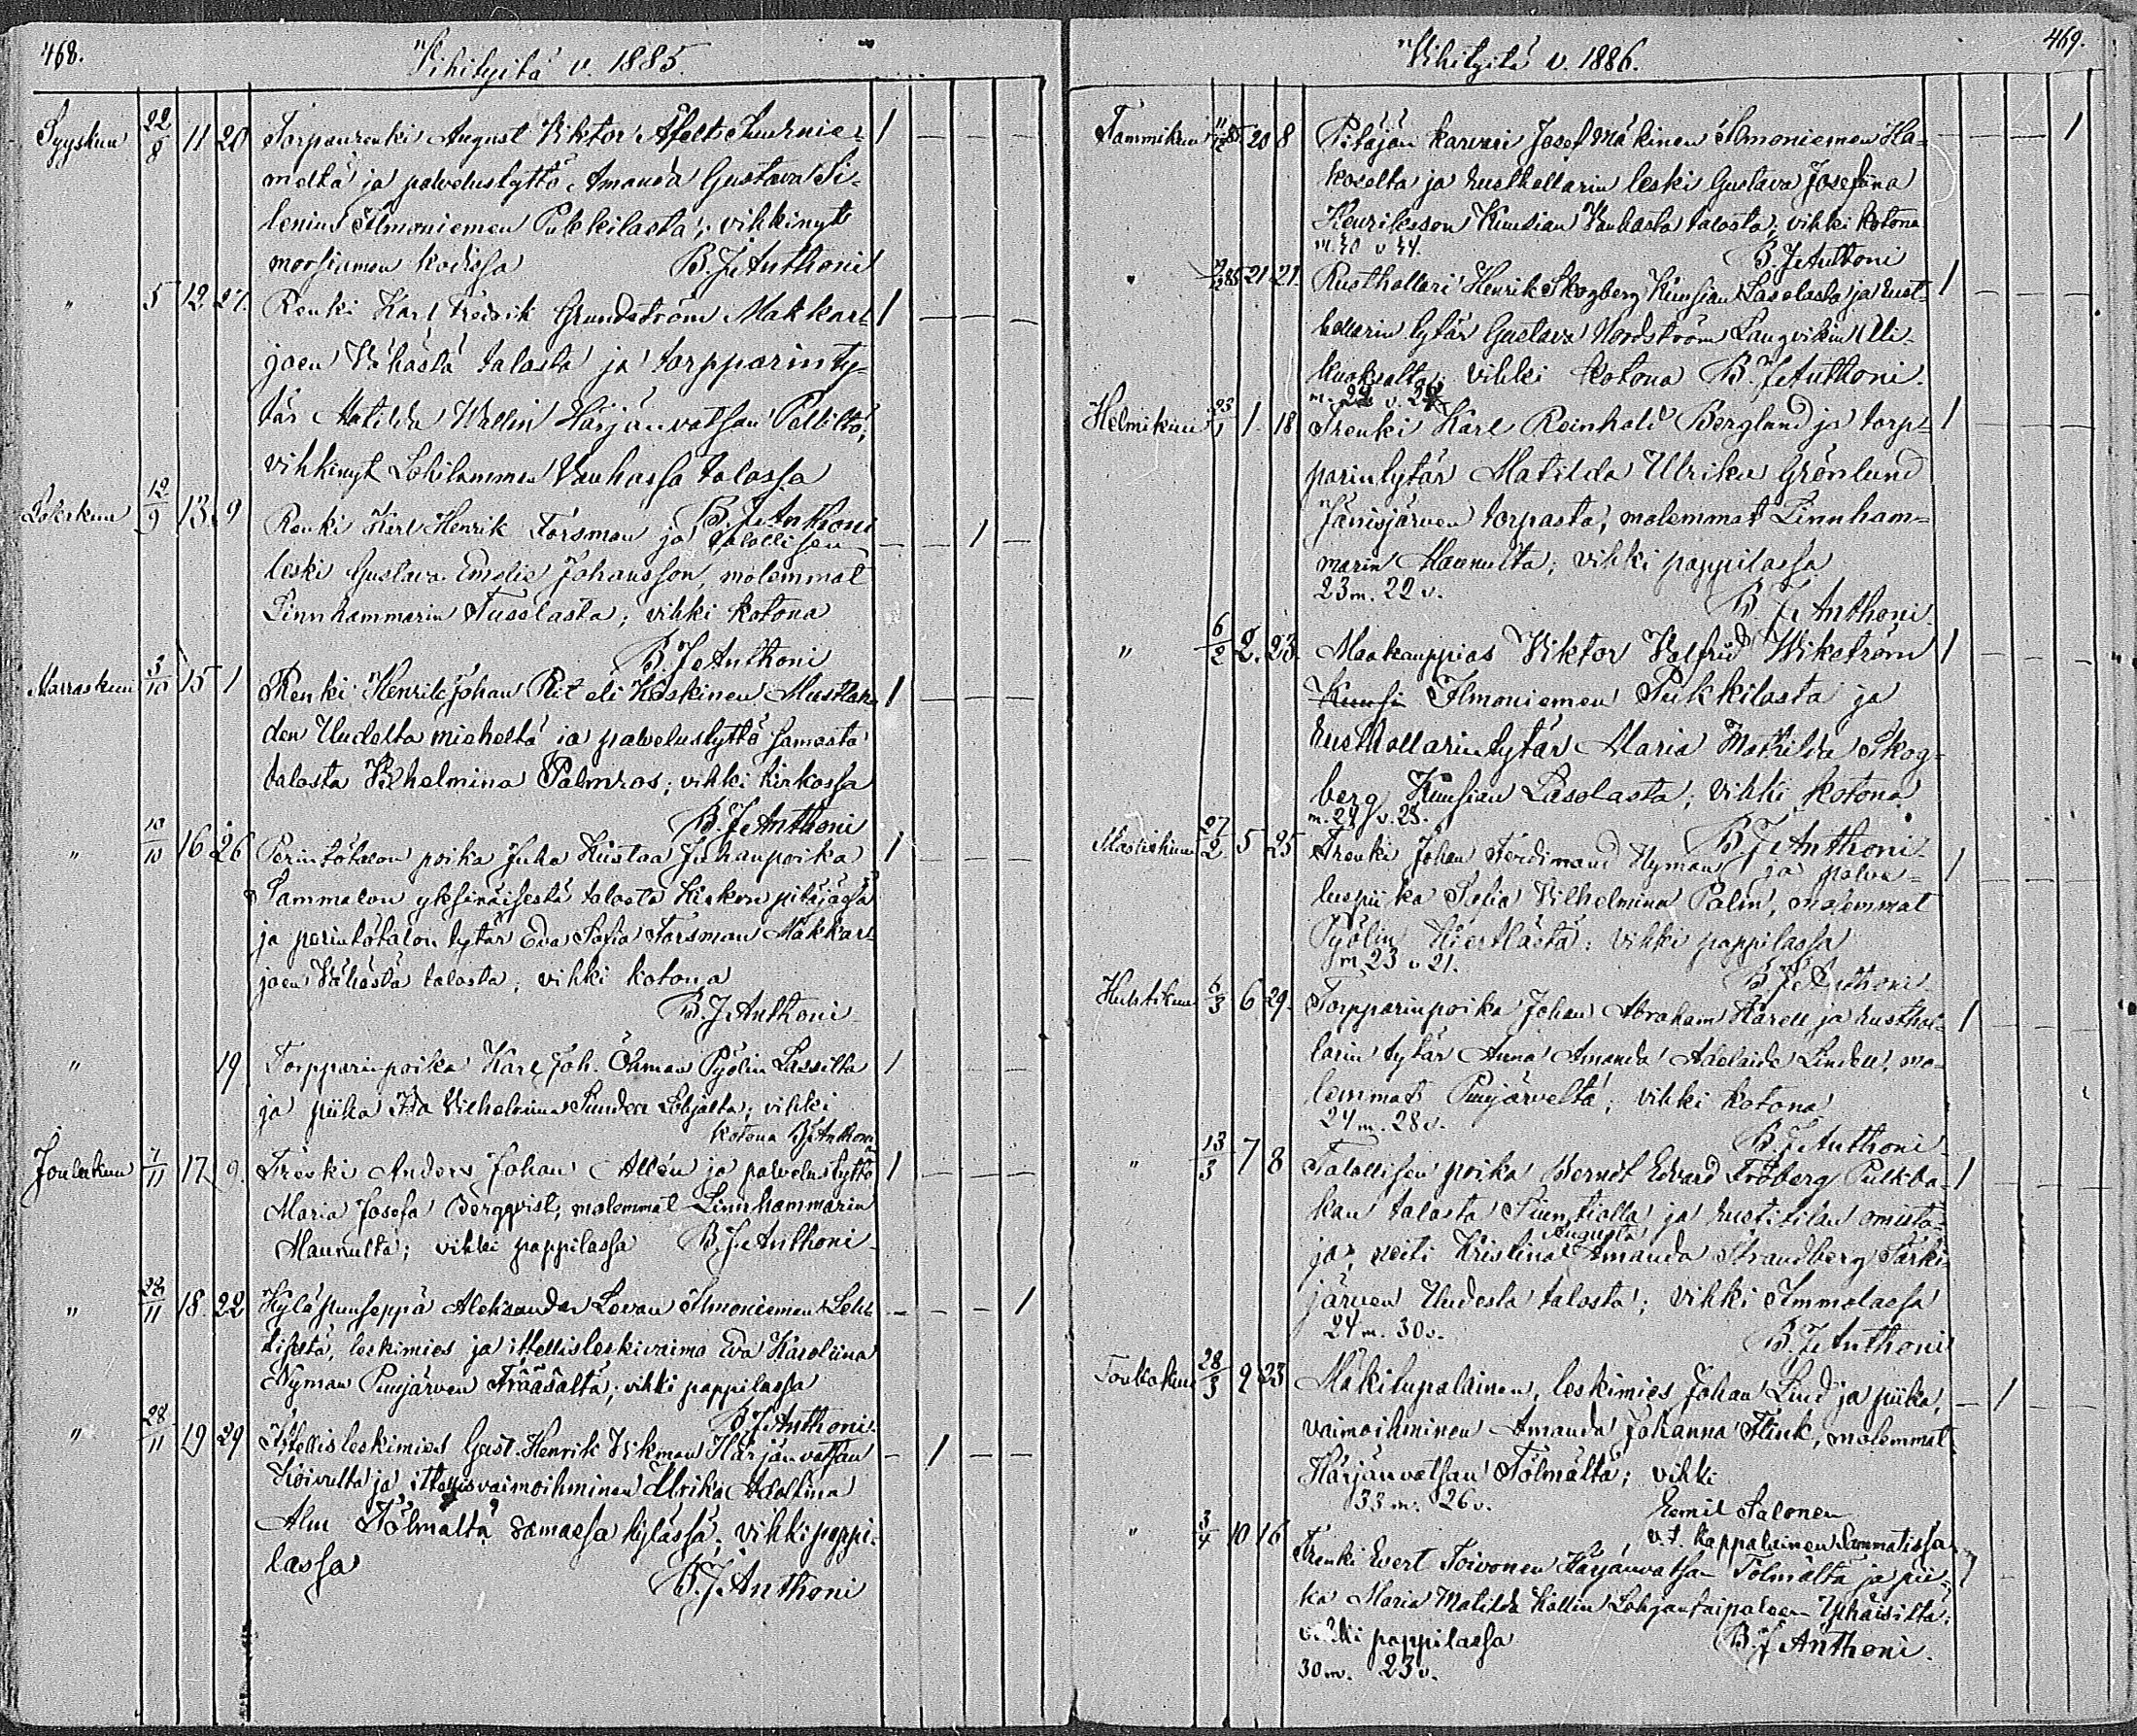 468.
Vihityitä v. 1885.
Syyskun 22/8 11 20 Torpanrenki August Viktor Afelt Suurnie- 1
meltä ja palvelustyttö Amanda Gustava Si-
lenius Ilmoniemen Pukkilasta; vihkinyt
morsiamen kodissa B. J. Anthoni
" 5 12 27. Renki Karl Fredrik Grundström Makkar- 1
joen Vähästä talosta ja torpparinty-
tär Matilda Wallin Härjänvatsan Peltilto;
vihkinyt Lohilammen Vanhassa talossa
B. J. Anthoni
Lokakuu 12/9 13 9 Renki Karl Henrik Forsman ja talollisen 1
leski Gustava Emelie Johansson, molemmat
Linnhammarin Tuselasta; vihki kotona
B. J. Anthoni
Marraskuu 3/10 15 1 Renki Henrik Johan Rit eli Koskinen Mustlah- 1
den Uudelta mieheltä ja palvelustyttö samasta
talosta Vilhelmina Palmros; vihki kirkossa
B. J. Anthoni
" 10/10 16 26 Perintötalon poika Juha Kustaa Juhanpoika 1
Sammalon yksinäisestä talosta Kiskon pitäjässä
ja perintötalon tytär Eva Sofia Forsman Makkar-
joen Vähästä talosta; vihki kotona
B. J. Anthoni
" 19 Torpparinpoika Karl Joh. Öhman Pyölin Lassilta 1
ja piika Ida Vilhelmina Sunden Lohjalta; vihki
kotona B. J. Anthoni
Joulukuu 7/11 17 9. Trenki Anders Johan Allén ja palvelustyttö 1
Maria Josefa Bergqvist, molemmat Linnhammarin
Maunulta; vihki pappilassa B. J. Anthoni
" 22/11 18. 22 Kyläpuuseppä Aleksander Levan Ilmoniemen Leh- 1
tisestä, leskimies ja ittellisleskivaimo Eva Karoliina
Nyman Puujärven Träasälta; vihki pappilassa
B. J. Anthoni.
" 28/11 19 29 Ittellisleskimies Gust. Henrik Vikman Härjänvatsan 1
Koivulta ja ittellisvaimoihminen Ulrika Adolfina
Alm Tölmältä samassa kylässä; vihki pappi-
lassa
B. J. Anthoni
469.
Vihityitä v. 1886.
Tammikuu 11/12 85 20 8 Pitäjän karvari Josef Mäkinen Ilmoniemen Ha- 1
koselta ja rusthollarin leski Gustava Josefina
Henriksson Kuusian Vanhasta talosta; vihki kotona
m. 40 v 44. B. J. Anthoni
" 85 21 21. Rusthollari Henrik Skogberg Kuusian Lasolasta ja rust- 1
hollarin tytär Gustava Nordström Langvikin Yli-
kuokselta; vihki kotona B. J. Anthoni.
Helmikuu 23/1 1 18 Trenki Karl Reinhold Berglund ja torp- 1
parintytär Matilda Ulrika Grönlund
Jänisjärven torpasta; molemmat Linnham-
marin Maunulta; vihki pappilassa
23 m. 22 v.
B. J. Anthoni.
" 6/2 2. 23. Maakauppias Viktor Valfrid Wikström 1
Kuusia Ilmoniemen Pukkilasta ja
rusthollarintytär Maria Mathilda Skog-
berg Kuusian Lasolasta; vihki kotona
m. 29 v. 25.
B. J. Anthoni.
Maaliskuu 27/2 5 25 Trenki Johan Ferdinand Nyman ja palve- 1
luspiika Sofia Vilhelmina Palin, molemmat
Pyölin Kiertlästä; vihki pappilassa
m. 23 v 21.
B. J. Anthoni
Huhtikuu 6/3 6 29. Torpparinpoika Johan Abraham Karell ja rusthol- 1
larin tytär Anna Amanda Adelaide Lindell, mo-
lemmat Puujärveltä; vihki kotona
24 m. 28 v.
B. J. Anthoni
" 13/3 7 8 Talollisen poika Berndt Edvard Fröberg Pulkka- 1
kan talosta Siuntiolla ja rustitilan omista-
ja, neiti Kristina Augusta Amanda Strandberg Särki-
järven Uudesta talosta; vihki Immolassa
24 m. 30 v.
B. J. Anthoni
Toukokuu 28/3 9 23 Mäkitupalainen, leskimies Johan Lind ja piika, 1
vaimoihminen Amanda Johanna Flink, molemmat
Härjänvatsan Tölmältä; vihki
33 m. 26 v. Eemil Salonen
v. t. kappalainen Sammatissa
" 3/4 10 16 Trenki Evert Toivonen Härjänvatsan Tölmältä ja pii- 1
ka Maria Matilda Kallin Lohjantaipaleen Yphäisiltä;
vihki pappilassa B. J. Anthoni.
30 m. 23 v.